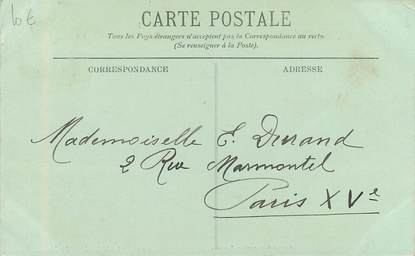 10€
CARTE POSTALE
Tous les Pays étrangers n'acceptent pas la Correspondance au recto
(Se renseigner à la Poste).
CORRESPONDANCE
ADRESSE
Mademoiselle E. Durand
2 Rue Marmontel
Paris XVe